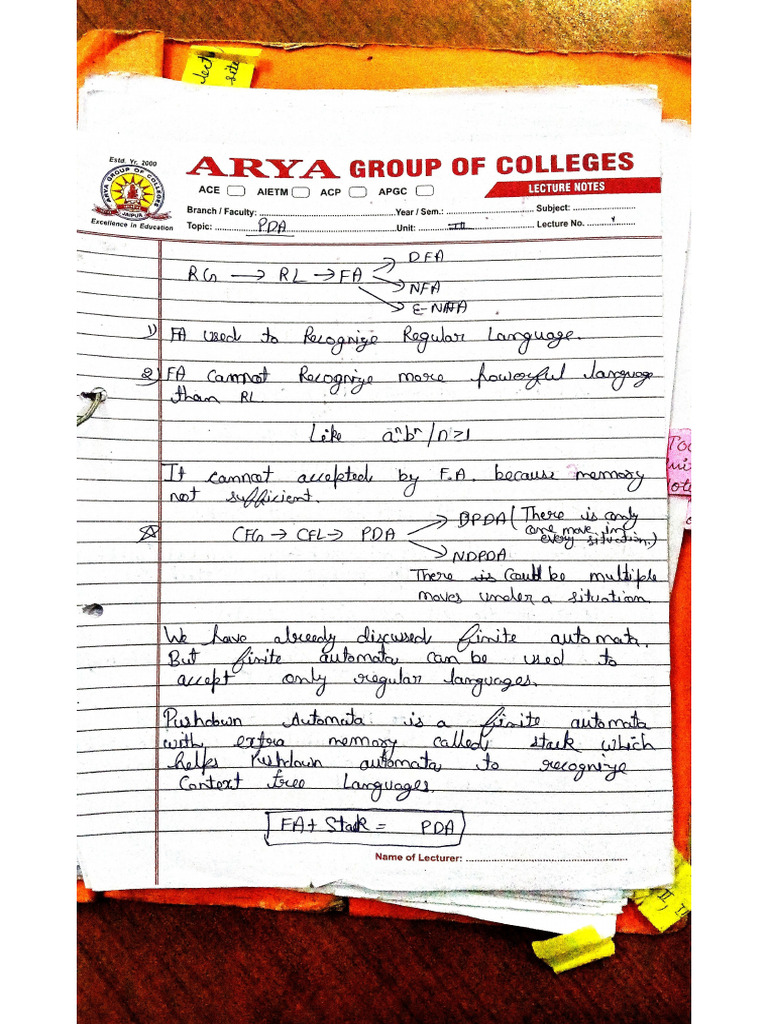 lect
site
Estd. Yr. 2000
ARYA GROUP OF COLLEGES
JAIPUR
Excellence in Education
ARYA GROUP OF COLLEGES
ACE AIETM ACP APGC
LECTURE NOTES
Branch / Faculty: Year / Sem.: Subject:
Topic: PDA Unit: III Lecture No. 1
RG → RL → FA → DFA
NFA
ε-NFA
1) FA used to Recognize Regular Language.
2) FA cannot Recognize more powerful language
than RL
Like aⁿbⁿ/n≥1
It cannot accepted by F.A. because memory
not sufficient.
CFG → CFL → PDA → DPDA (There is only
one move in
every situation.)
NDPDA
There is Could be multiple
moves under a situation.
We have already discussed finite automata.
But finite automata can be used to
accept only regular languages.
Pushdown Automata is a finite automata
with extra memory called stack which
helps Pushdown automata to recognize
Context free Languages.
FA + Stack = PDA
Name of Lecturer: